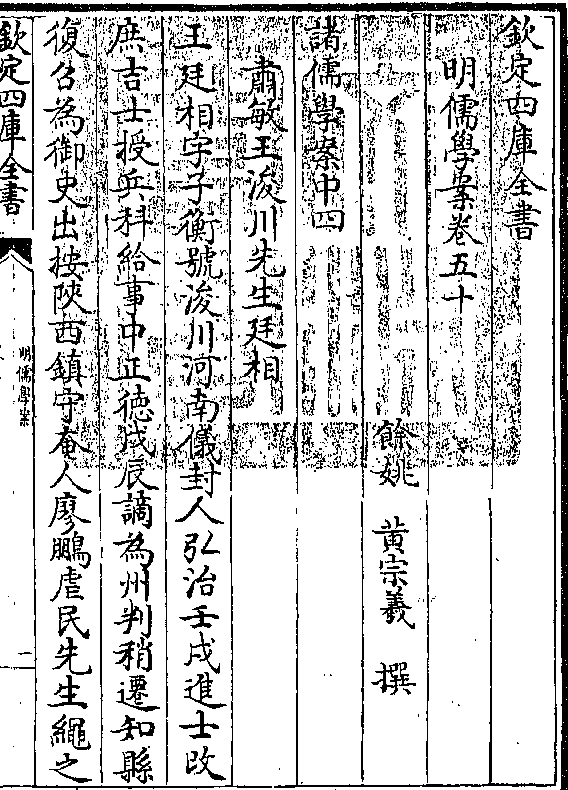 欽定四庫全書
明儒學案卷五十
餘姚 黃宗羲 撰
諸儒學案中四
肅敏王浚川先生廷相
王廷相字子衡號浚川河南儀封人弘治壬戌進士改
庶吉士授兵科給事中正徳戊辰謫為州判稍遷知縣
復召為御史出按陜西鎮守奄人廖鵬虐民先生繩之
欽定四庫全書
明儒學案